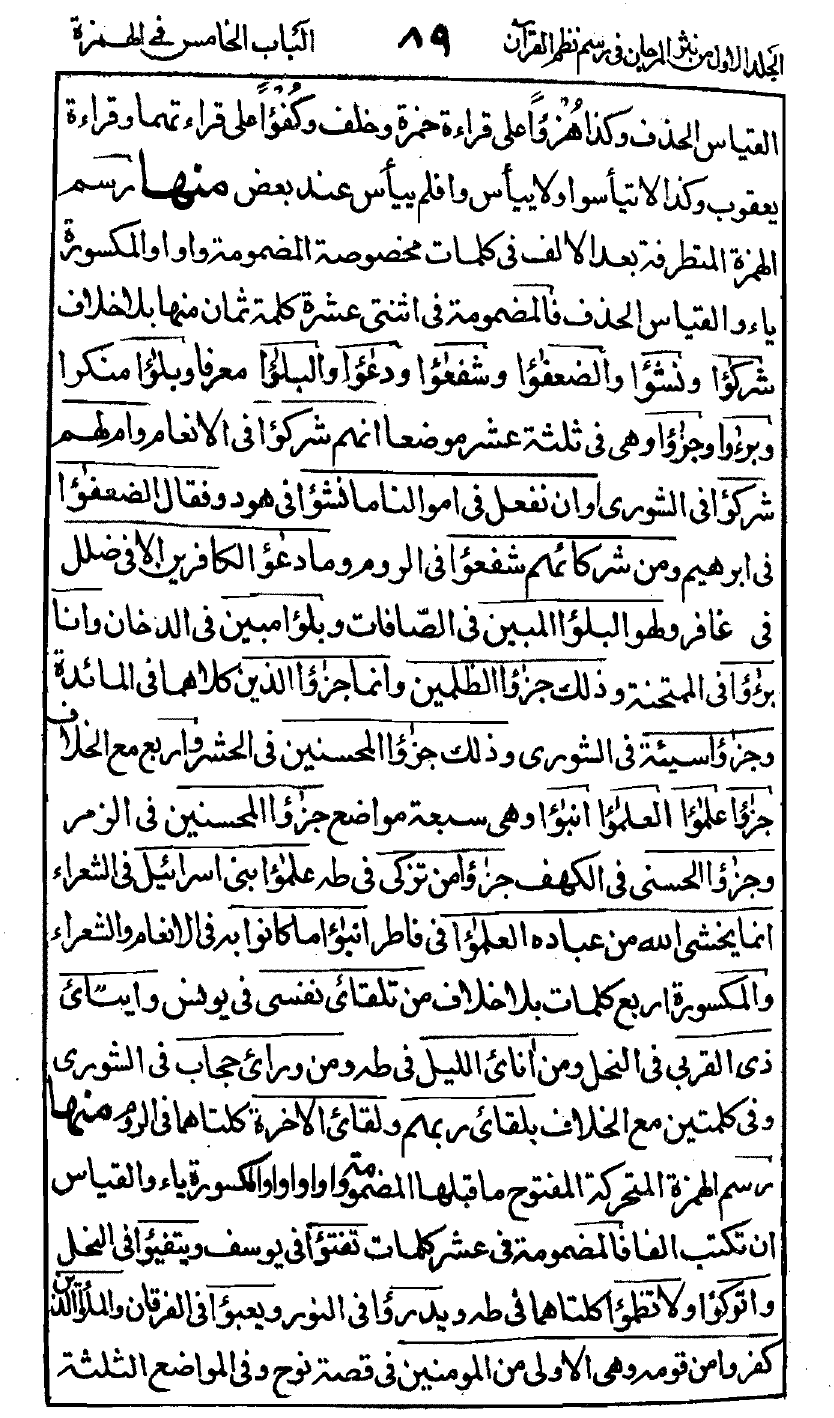 المجلد الاول من نثر المرجان فى رسم نظم القرآن ٨٩ الباب الخامس فى الهمزة
القياس الحذف وكذا هُزُؤًا على قراءة حمزة وخلف وكُفُؤًا على قراءتهما وقراءة
يعقوب وكذا لا تيأسوا ولا ييأس وافلم ييأس عند بعض منها رسم
الهمزة المتطرفة بعد الالف فى كلمات مخصوصة المضمومة واوا والمكسورة
ياء والقياس الحذف فالمضمومة فى اثنتى عشرة كلمة ثمان منها بلا خلاف
شركٰؤا ونشٰؤا والضعفٰؤا وشفعٰؤا ودعٰؤا والبلٰؤا معرفا وبلٰؤا منكرا
وبرءٰوا وجزٰؤا وهى فى ثلثة عشر موضعا انهم شركٰؤا فى الانعام وام لهم
شركٰؤا فى الشورى اوان نفعل فى اموالنا ما نشٰؤا فى هود وفقال الضعفٰؤا
فى ابرهيم ومن شركائهم شفعٰؤا فى الروم وما دعٰؤا الكافرين الا فى ضلل
فى غافر ولهو البلٰؤا المبين فى الصّافات وبلٰؤا مبين فى الدخان وانا
برٰءؤا فى الممتحنة وذلك جزٰؤا الظلمين وانما جزٰؤا الذين كلاهما فى المائدة
وجزٰؤا سيئة فى الشورى وذلك جزٰؤا المحسنين فى الحشر واربع مع الخلاف
جزٰؤا علمٰؤا العلمٰؤا انبٰؤا وهى سبعة مواضع جزٰؤا المحسنين فى الزمر
وجزٰؤا الحسنى فى الكهف جزٰؤا من تزكى فى طه علمٰؤا بنى اسرائيل فى الشعراء
انما يخشى الله من عباده العلمٰؤا فى فاطر انبٰؤا ما كانوا به فى الانعام والشعراء
والمكسورة اربع كلمات بلا خلاف من تلقائ نفسى فى يونس وايتائ
ذى القربى فى النحل ومن اٰنائ الليل فى طه ومن ورائ حجاب فى الشورى
وفى كلمتين مع الخلاف بلقائ ربهم ولقائ الاخرة كلتاهما فى الروم منها
رسم الهمزة المتحركة المفتوح ما قبلها المضمومة واوا والمكسورة ياء والقياس
ان تكتب الفا فالمضمومة فى عشر كلمات تفتؤا فى يوسف ويتفيؤا فى النحل
واتوكؤا ولا تظمؤا كلتاهما فى طه ويدرؤا فى النور ويعبؤا فى الفرقان والملؤا الذين
كفروا من قومه وهى الاولى من المومنين فى قصة نوح وفى المواضع الثلثة